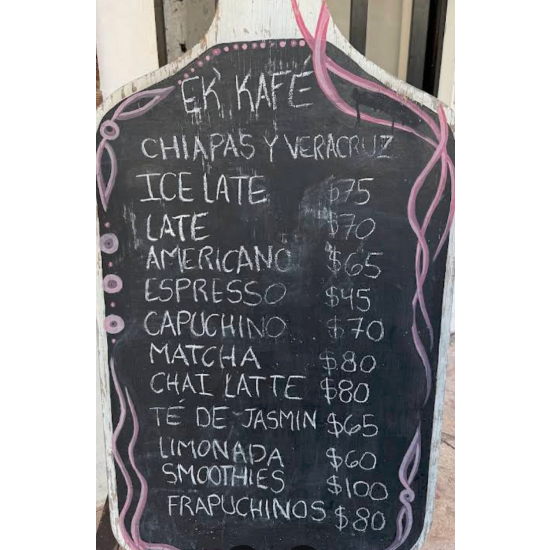 EK' KAFÉ
CHIAPAS Y VERACRUZ
ICE LATE $75
LATE $70
AMERICANO $65
ESPRESSO $45
CAPUCHINO $70
MATCHA $80
CHAI LATTE $80
TÉ DE JASMIN $65
LIMONADA $60
SMOOTHIES $100
FRAPUCHINOS $80